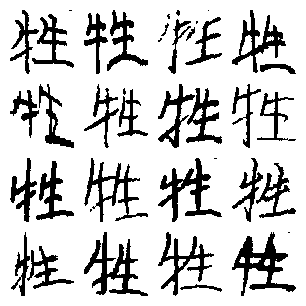 牲牲牲牲
牲牲牲牲
牲牲牲牲
牲牲牲牲